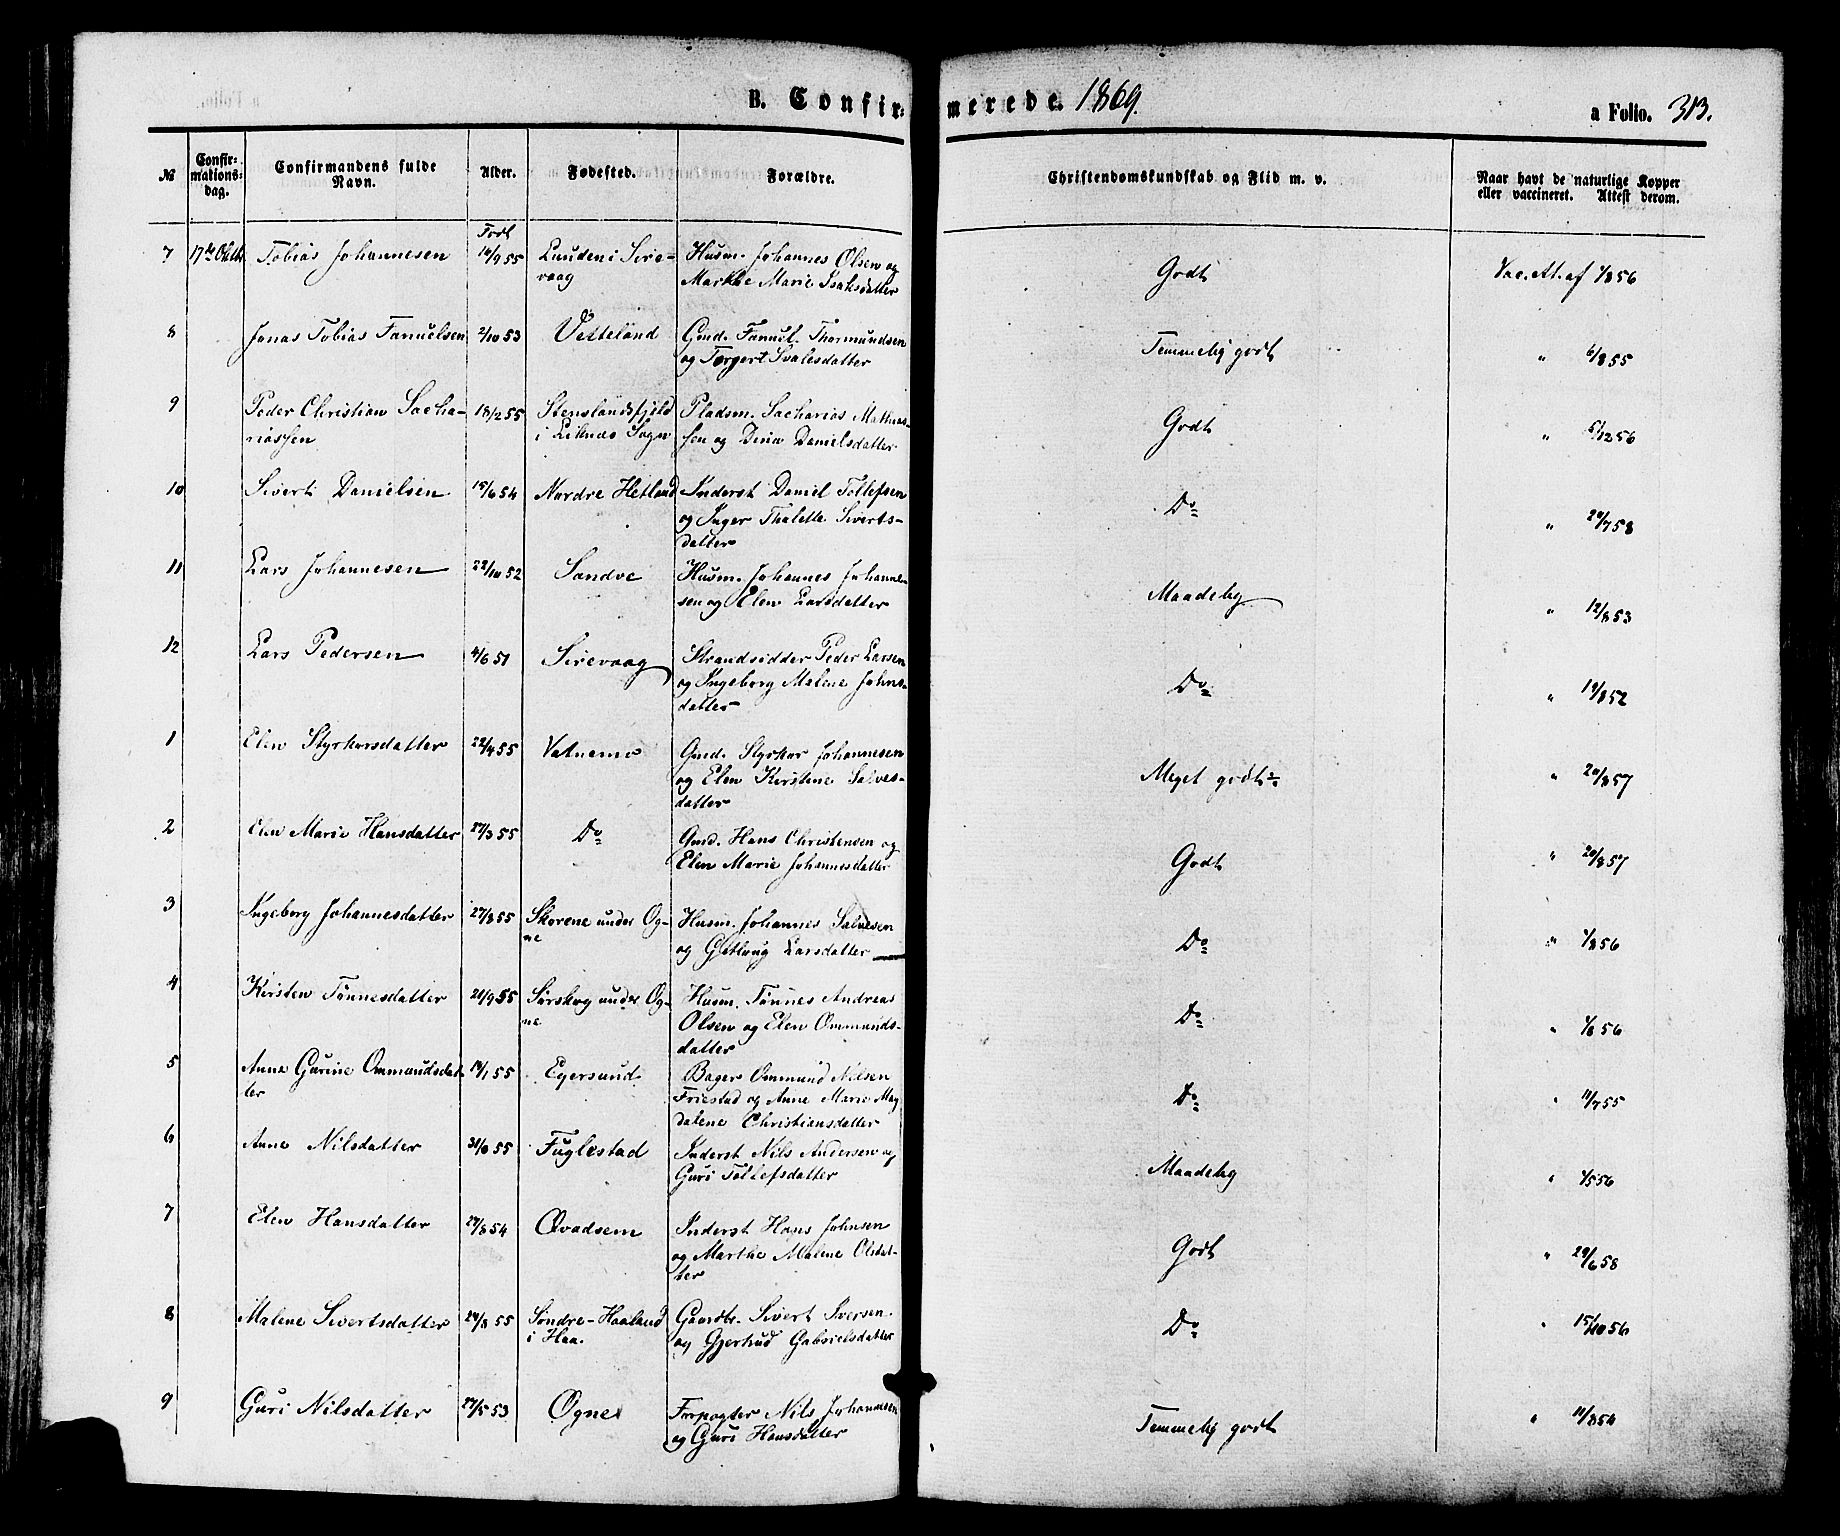 B. Confirmerede. 1869.
a Folio. 313.
№
Confir-
mations-
dag.
Confirmandens fulde
Navn.
Alder.
Fødested.
Forældre.
Christendomskundskab og Flid m. v.
Naar havt de naturlige Kopper
eller vaccineret. Attest derom.
Født
7 17de Octbr Tobias Johannesen 14/9 55 Lunden i Sire- Husm. Johannes Olsen og Godt Vac. At. af 1/8 56
vaag Marthe Marie Isaksdatter
8 Jonas Tobias Fanuelsen 2/10 53 Vetteland Gmd. Fanuel Thormundsen Temmelig godt " 6/8 55
og Torgert Svalesdatter
9 Peder Christian Sacha- 18/2 55 Stenslandsfjeld Pladsm. Sacharias Mathias- Godt " 5/12 56
riassen i Liknes Sogn sen og Dina Danielsdatter
10 Sivert Danielsen 15/6 54 Nordre Hetland Inderst Daniel Tollefsen Do " 29/7 58
og Inger Thalette Siverts-
datter
11 Lars Johannesen 22/10 52 Sandve Husm. Johannes Johanne- Maadelig " 12/8 53
sen og Elen Larsdatter
12 Lars Pedersen 4/6 51 Sirevaag Strandsidder Peder Larsen Do " 19/8 52
og Ingeborg Malene Johns-
datter
1 Elen Styrkorsdatter 22/4 55 Vatnemo Gmd. Styrkor Johannesen Meget godt " 20/8 57
og Elen Kirstine Salves-
datter
2 Elen Marie Hansdatter 27/3 55 Do Gmd. Hans Christensen og Godt " 20/8 57
Elen Marie Johannesdatter
3 Ingeborg Johannesdatter 27/8 55 Skorene under Og- Husm. Johannes Salvesen Do " 1/8 56
ne og Gitlaug Larsdatter
4 Kirsten Tønnesdatter 21/9 55 Sørskog under Og- Husm. Tønnes Andreas Do " 1/8 56
ne Olsen og Elen Ommunds-
datter
5 Anne Gurine Ommundsdat- 14/1 55 Egersund Bager Ommund Nilsen Do " 11/7 55
ter Friestad og Anne Marie Mag
dalene Christiansdatter
6 Anne Nilsdatter 31/8 55 Fuglestad Inderst Nils Andersen og Maadelig " 1/5 56
Guri Tollefsdatter
7 Elen Hansdatter 27/8 54 Qvadsem Inderst Hans Johnsen Godt " 29/6 58
og Marthe Malene Olsdat-
ter
8 Malene Sivertsdatter 24/8 55 Søndre-Haaland Gaardbr. Sivert Iversen Do " 15/10 56
i Haa. og Gjertrud Gabrielsdatter
9 Guri Nilsdatter 27/5 53 Ogne Forpagter Nils Johannesen Temmelig godt " 11/8 54
og Guri Hansdatter